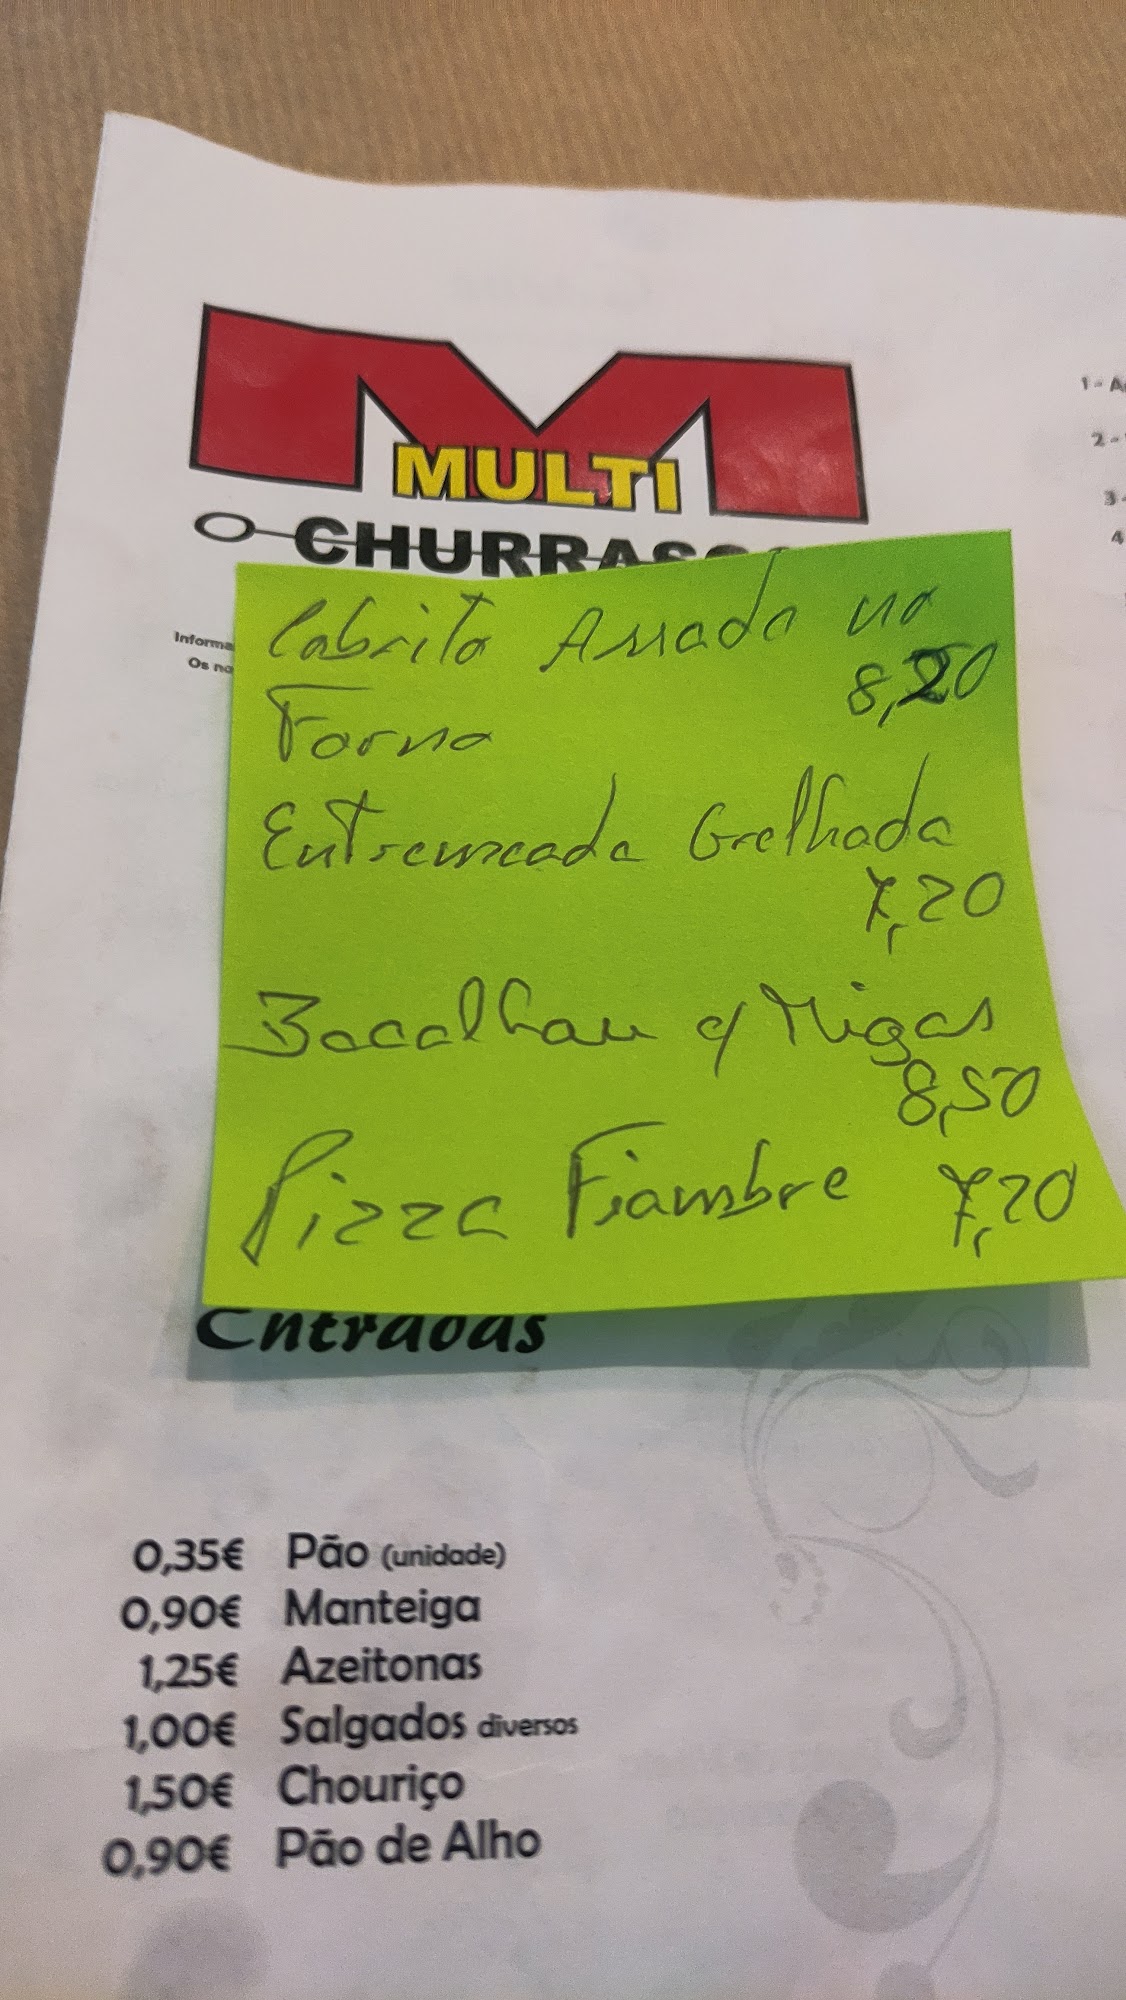 MULTI
CHURRASC
1 - A
2 -
3 -
4
Informa
Os no
Cabrito Assado no
8,20
Forno
Entremeada Grelhada
7,20
Bacalhau c/ Migas
8,50
Pizza Fiambre 7,20
Entradas
0,35€ Pão (unidade)
0,90€ Manteiga
1,25€ Azeitonas
1,00€ Salgados diversos
1,50€ Chouriço
0,90€ Pão de Alho